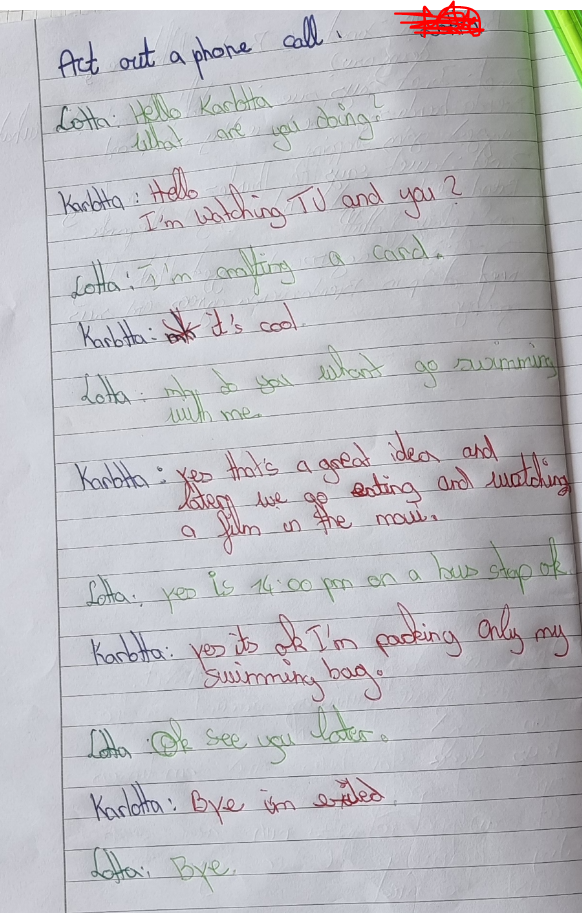 Act out a phone call.
Lotta: Hello Karlotta
What are you doing?
Karlotta: Hello
I'm watching TV and you?
Lotta: I'm crafting a card.
Karlotta: it's cool.
Lotta: do you whant go swimming
with me.
Karlotta: yes that's a great idea and
later we go eating and watching
a film in the movi.
Lotta: yes is 14:00 pm on a bus stop ok
Karlotta: yes its ok I'm packing only my
swimming bag.
Lotta Ok see you later.
Karlotta: Bye im exited.
Lotta: Bye.